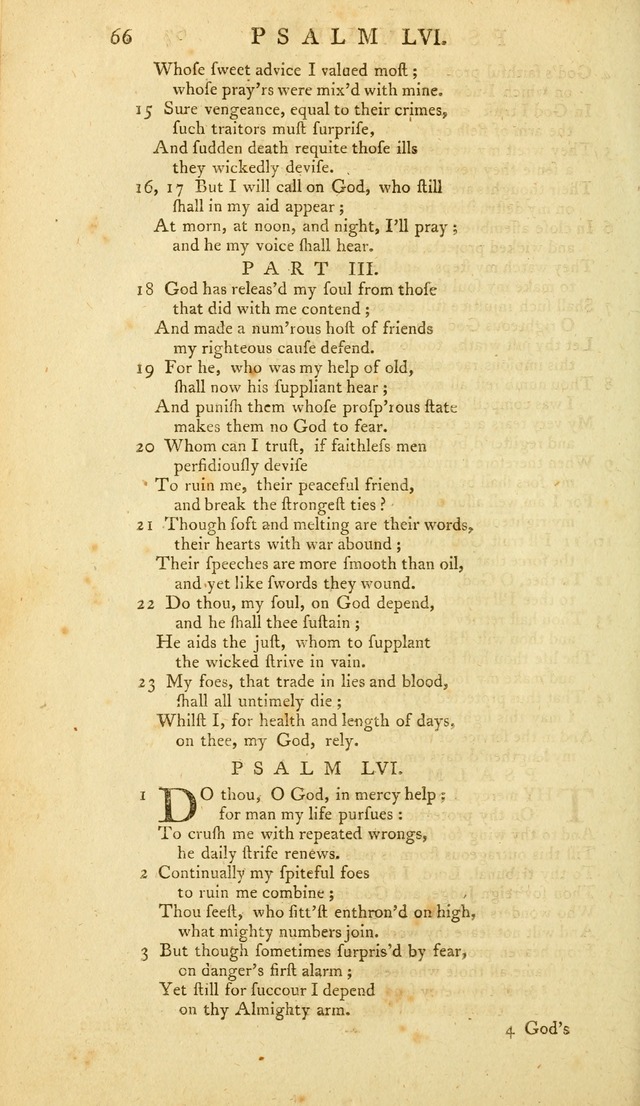 66 PSALM LVI.
Whoſe ſweet advice I valued moſt;
whoſe pray'rs were mix'd with mine.
15 Sure vengeance, equal to their crimes,
ſuch traitors muſt ſurpriſe,
And ſudden death requite thoſe ills
they wickedly deviſe.
16, 17 But I will call on God, who ſtill
ſhall in my aid appear;
At morn, at noon, and night, I'll pray;
and he my voice ſhall hear.
PART III.
18 God has releas'd my ſoul from thoſe
that did with me contend;
And made a num'rous hoſt of friends
my righteous cauſe defend.
19 For he, who was my help of old,
ſhall now his ſuppliant hear;
And puniſh them whoſe proſp'rous ſtate
makes them no God to fear.
20 Whom can I truſt, if faithleſs men
perfidiouſly deviſe
To ruin me, their peaceful friend,
and break the ſtrongeſt ties?
21 Though ſoft and melting are their words,
their hearts with war abound;
Their ſpeeches are more ſmooth than oil,
and yet like ſwords they wound.
22 Do thou, my ſoul, on God depend,
and he ſhall thee ſuſtain;
He aids the juſt, whom to ſupplant
the wicked ſtrive in vain.
23 My foes, that trade in lies and blood,
ſhall all untimely die;
Whilſt I, for health and length of days,
on thee, my God, rely.
PSALM LVI.
1 DO thou, O God, in mercy help;
for man my life purſues:
To cruſh me with repeated wrongs,
he daily ſtrife renews.
2 Continually my ſpiteful foes
to ruin me combine;
Thou ſeeſt, who ſitt'ſt enthron'd on high,
what mighty numbers join.
3 But though ſometimes ſurpris'd by fear,
on danger's firſt alarm;
Yet ſtill for ſuccour I depend
on thy Almighty arm.
4 God's